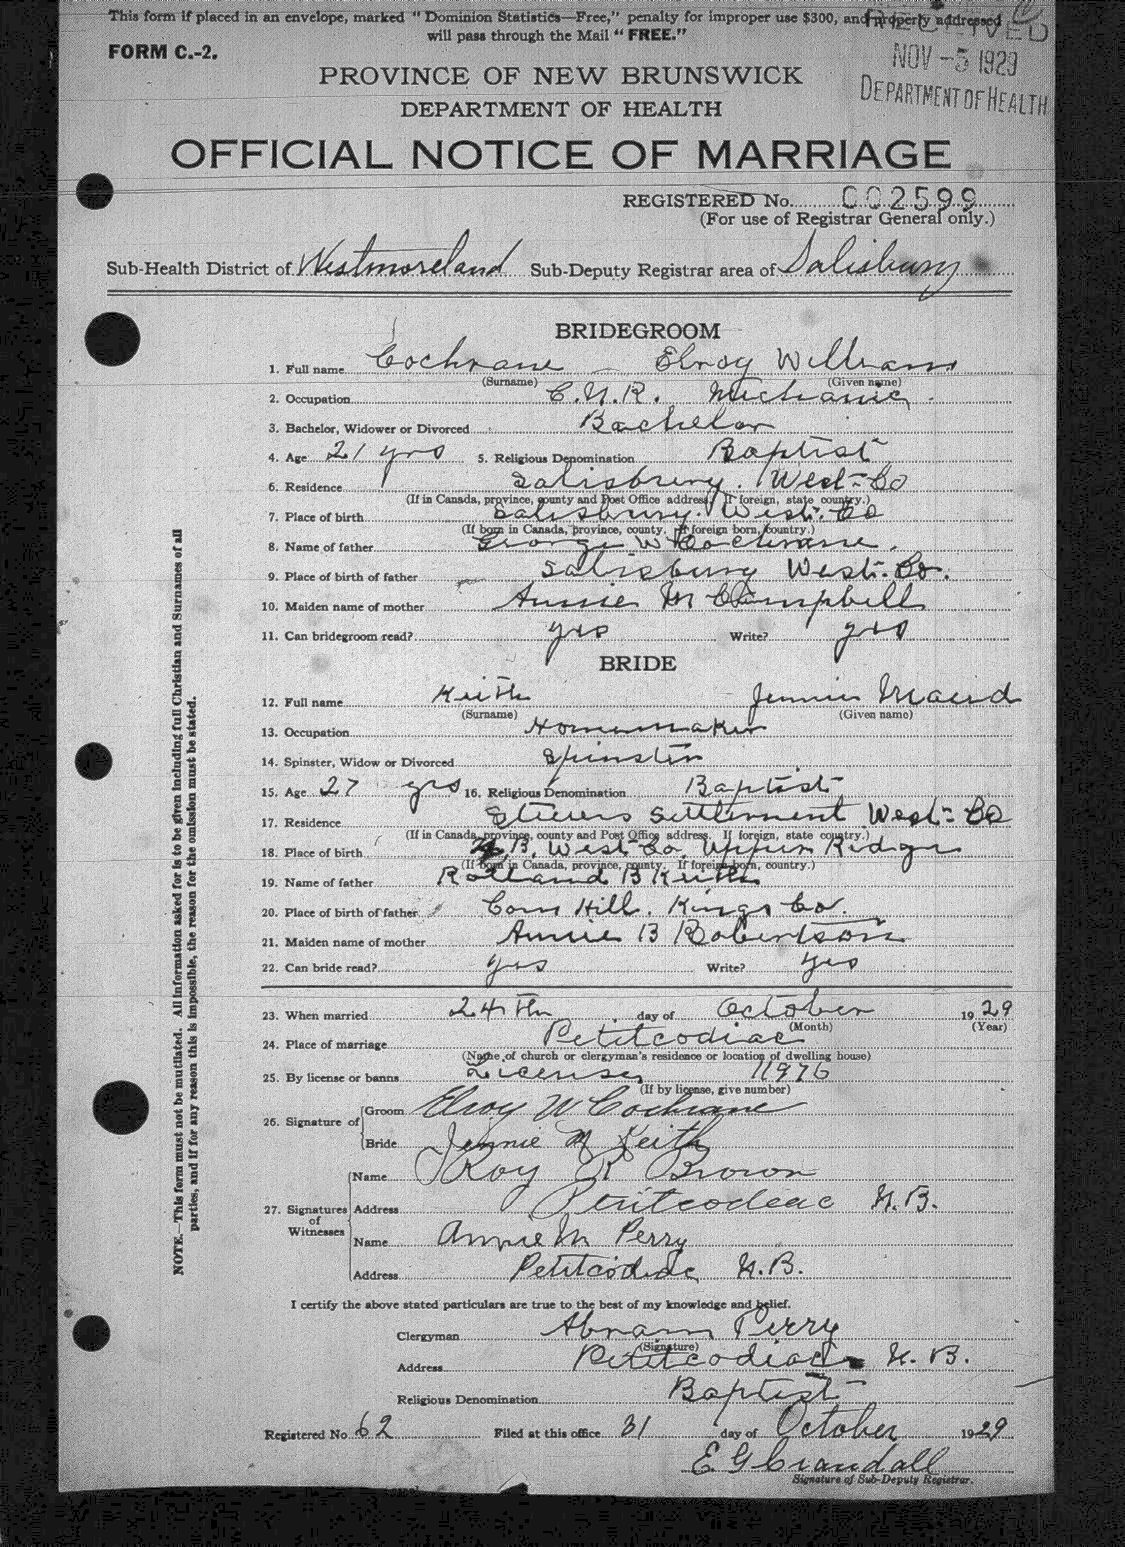 This form if placed in an envelope, marked "Dominion Statistics—Free," penalty for improper use $300, and properly addressed
will pass through the Mail "FREE."
FORM C.-2.
RECEIVED
NOV -5 1929
DEPARTMENT OF HEALTH
PROVINCE OF NEW BRUNSWICK
DEPARTMENT OF HEALTH
OFFICIAL NOTICE OF MARRIAGE
REGISTERED No. 002599
(For use of Registrar General only.)
Sub-Health District of Westmoreland Sub-Deputy Registrar area of Salisbury
BRIDEGROOM
1. Full name Cochrane - Elroy William
(Surname) (Given name)
2. Occupation C.N.R. Mechanic
3. Bachelor, Widower or Divorced Bachelor
4. Age 21 yrs 5. Religious Denomination Baptist
6. Residence Salisbury. West. Co
(If in Canada, province, county and Post Office address. If foreign, state country.)
7. Place of birth Salisbury. West. Co
(If born in Canada, province, county. If foreign born, country.)
8. Name of father George W Cochrane.
9. Place of birth of father Salisbury West. Co.
10. Maiden name of mother Annie M Campbell
11. Can bridegroom read? yes Write? yes
BRIDE
12. Full name Keith Jennie Maud
(Surname) (Given name)
13. Occupation Homemaker
14. Spinster, Widow or Divorced Spinster
15. Age 27 yrs 16. Religious Denomination Baptist
17. Residence Settlement West. Co
(If in Canada, province, county and Post Office address. If foreign, state country.)
18. Place of birth N.B. West Co. Upper Ridge
(If born in Canada, province, county. If foreign born, country.)
19. Name of father Rolland B Keith
20. Place of birth of father Corn Hill. Kings Co.
21. Maiden name of mother Annie B Robertson
22. Can bride read? yes Write? yes
23. When married 24th day of October 1929
(Month) (Year)
24. Place of marriage Petitcodiac
(Name of church or clergyman's residence or location of dwelling house)
25. By license or banns License 11976
(If by license, give number)
26. Signature of Groom Elroy W Cochrane
Bride Jennie M Keith
27. Signatures of Witnesses
Name Roy R Brown
Address Petitcodeac N.B.
Name Annie M Perry
Address Petitcodiac N.B.
I certify the above stated particulars are true to the best of my knowledge and belief.
Clergyman Abram Perry
(Signature)
Address Petitcodiac N.B.
Religious Denomination Baptist
Registered No. 62 Filed at this office 31 day of October 1929
E G Crandall
Signature of Sub-Deputy Registrar.
NOTE.—This form must not be mutilated. All information asked for is to be given including full Christian and Surnames of all
parties, and if for any reason this is impossible, the reason for the omission must be stated.